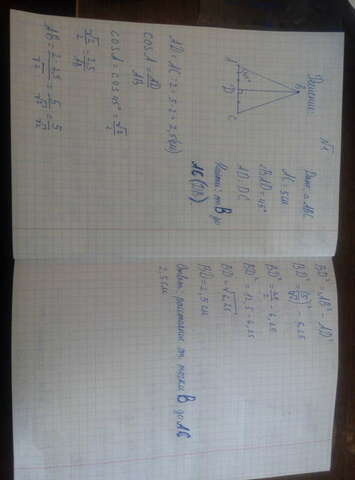 №1
Решение:
Дано: △ABC
AC = 5см
∠BAD = 45°
AD = DC
Найти: от B до
AC (DB).
A
45°
D
B
C
AD = AC : 2 = 5 : 2 = 2,5 (см)
cosA = AD/AB
cosA = cos 45° = √2/2
√2/2 = 2,5/AB
BD² = AB² - AD²
BD² = (5/√2)² - 6,25
BD² = 25/2 - 6,25
BD² = 12,5 - 6,25
BD = √6,25
BD = 2,5 см
Ответ: расстояние от точки B до AC
2,5 см